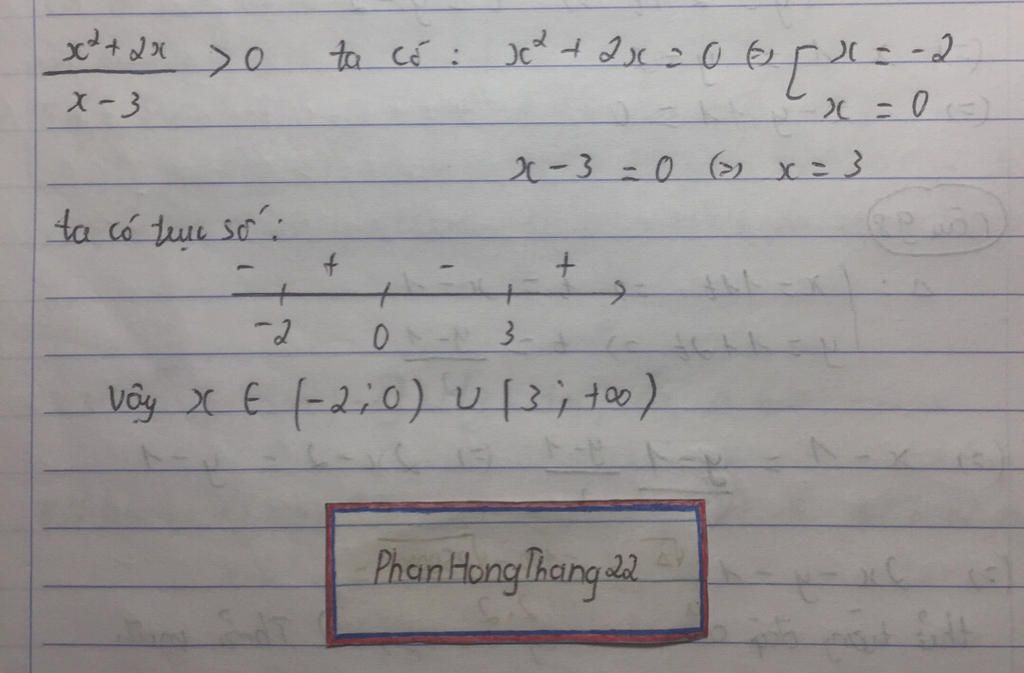 x² + 2x / x - 3 > 0 ta có : x² + 2x = 0 (=) [ x = -2
x = 0
x - 3 = 0 (=) x = 3
ta có trục số :
- + - +
-2 0 3
Vậy x ∈ (-2 ; 0) ∪ (3 ; +∞)
PhanHongThang22